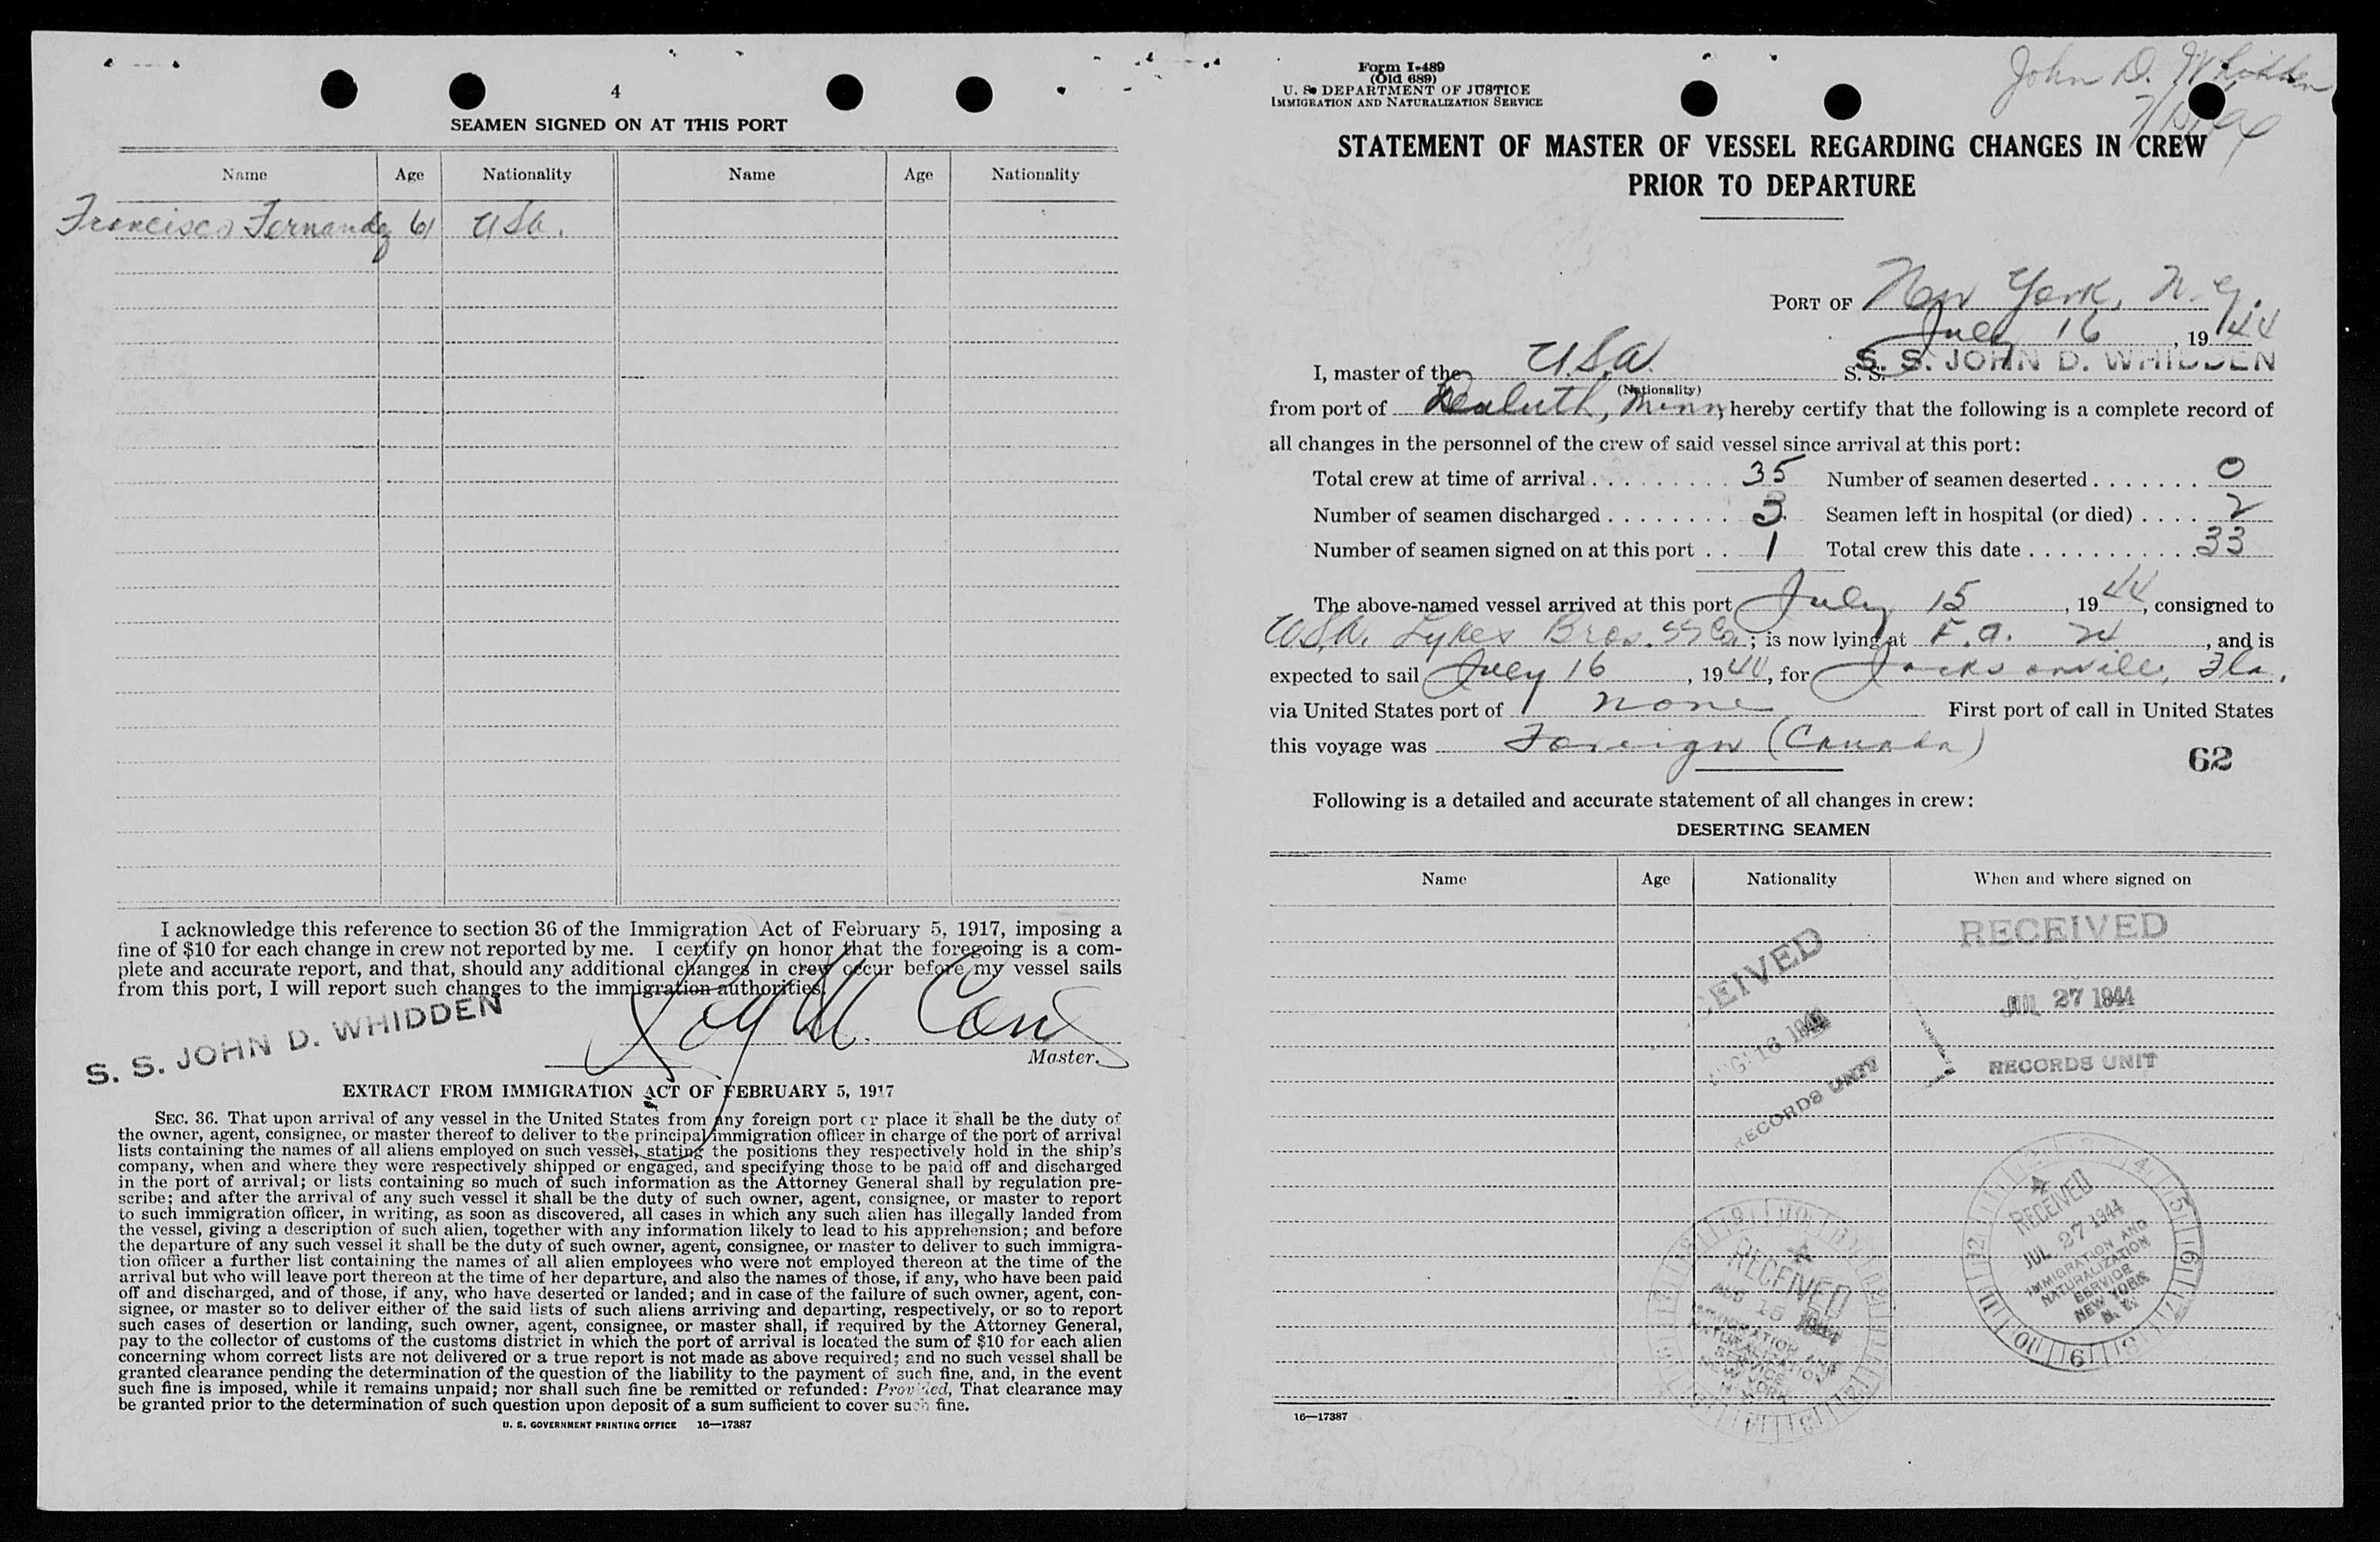 4
SEAMEN SIGNED ON AT THIS PORT
Name Age Nationality Name Age Nationality
Francisco Fernandez 61 USA.
I acknowledge this reference to section 36 of the Immigration Act of February 5, 1917, imposing a
fine of $10 for each change in crew not reported by me. I certify on honor that the foregoing is a com-
plete and accurate report, and that, should any additional changes in crew occur before my vessel sails
from this port, I will report such changes to the immigration authorities.
S. S. JOHN D. WHIDDEN
Master.
EXTRACT FROM IMMIGRATION ACT OF FEBRUARY 5, 1917
SEC. 36. That upon arrival of any vessel in the United States from any foreign port or place it shall be the duty of
the owner, agent, consignee, or master thereof to deliver to the principal immigration officer in charge of the port of arrival
lists containing the names of all aliens employed on such vessel, stating the positions they respectively hold in the ship's
company, when and where they were respectively shipped or engaged, and specifying those to be paid off and discharged
in the port of arrival; or lists containing so much of such information as the Attorney General shall by regulation pre-
scribe; and after the arrival of any such vessel it shall be the duty of such owner, agent, consignee, or master to report
to such immigration officer, in writing, as soon as discovered, all cases in which any such alien has illegally landed from
the vessel, giving a description of such alien, together with any information likely to lead to his apprehension; and before
the departure of any such vessel it shall be the duty of such owner, agent, consignee, or master to deliver to such immigra-
tion officer a further list containing the names of all alien employees who were not employed thereon at the time of the
arrival but who will leave port thereon at the time of her departure, and also the names of those, if any, who have been paid
off and discharged, and of those, if any, who have deserted or landed; and in case of the failure of such owner, agent, con-
signee, or master so to deliver either of the said lists of such aliens arriving and departing, respectively, or so to report
such cases of desertion or landing, such owner, agent, consignee, or master shall, if required by the Attorney General,
pay to the collector of customs of the customs district in which the port of arrival is located the sum of $10 for each alien
concerning whom correct lists are not delivered or a true report is not made as above required; and no such vessel shall be
granted clearance pending the determination of the question of the liability to the payment of such fine, and, in the event
such fine is imposed, while it remains unpaid; nor shall such fine be remitted or refunded: Provided, That clearance may
be granted prior to the determination of such question upon deposit of a sum sufficient to cover such fine.
U. S. GOVERNMENT PRINTING OFFICE 16—17387
John D. Whidden
Form I-489
(Old 689)
U. S. DEPARTMENT OF JUSTICE
IMMIGRATION AND NATURALIZATION SERVICE
STATEMENT OF MASTER OF VESSEL REGARDING CHANGES IN CREW
PRIOR TO DEPARTURE
PORT OF New York, N.Y.
July 16, 1944
I, master of the U.S.A. S. S. S. S. JOHN D. WHIDDEN
(Nationality)
from port of Duluth, Minn, hereby certify that the following is a complete record of
all changes in the personnel of the crew of said vessel since arrival at this port:
Total crew at time of arrival 35 Number of seamen deserted 0
Number of seamen discharged 3 Seamen left in hospital (or died) 2
Number of seamen signed on at this port 1 Total crew this date 33
The above-named vessel arrived at this port July 15, 1944, consigned to
Lykes Bros. SS Co.; is now lying at F.A. 24, and is
expected to sail July 16, 1944, for Jacksonville, Fla.
via United States port of None First port of call in United States
this voyage was Foreign (Canada)
62
Following is a detailed and accurate statement of all changes in crew:
DESERTING SEAMEN
Name Age Nationality When and where signed on
RECEIVED
JUL 27 1944
RECORDS UNIT
CEIVED
16 1944
RECORDS UNIT
RECEIVED
JUL 27 1944
IMMIGRATION AND
NATURALIZATION
SERVICE
NEW YORK
N. Y.
RECEIVED
AUG 15 1944
IMMIGRATION AND
NATURALIZATION
SERVICE
NEW YORK
N. Y.
16—17387